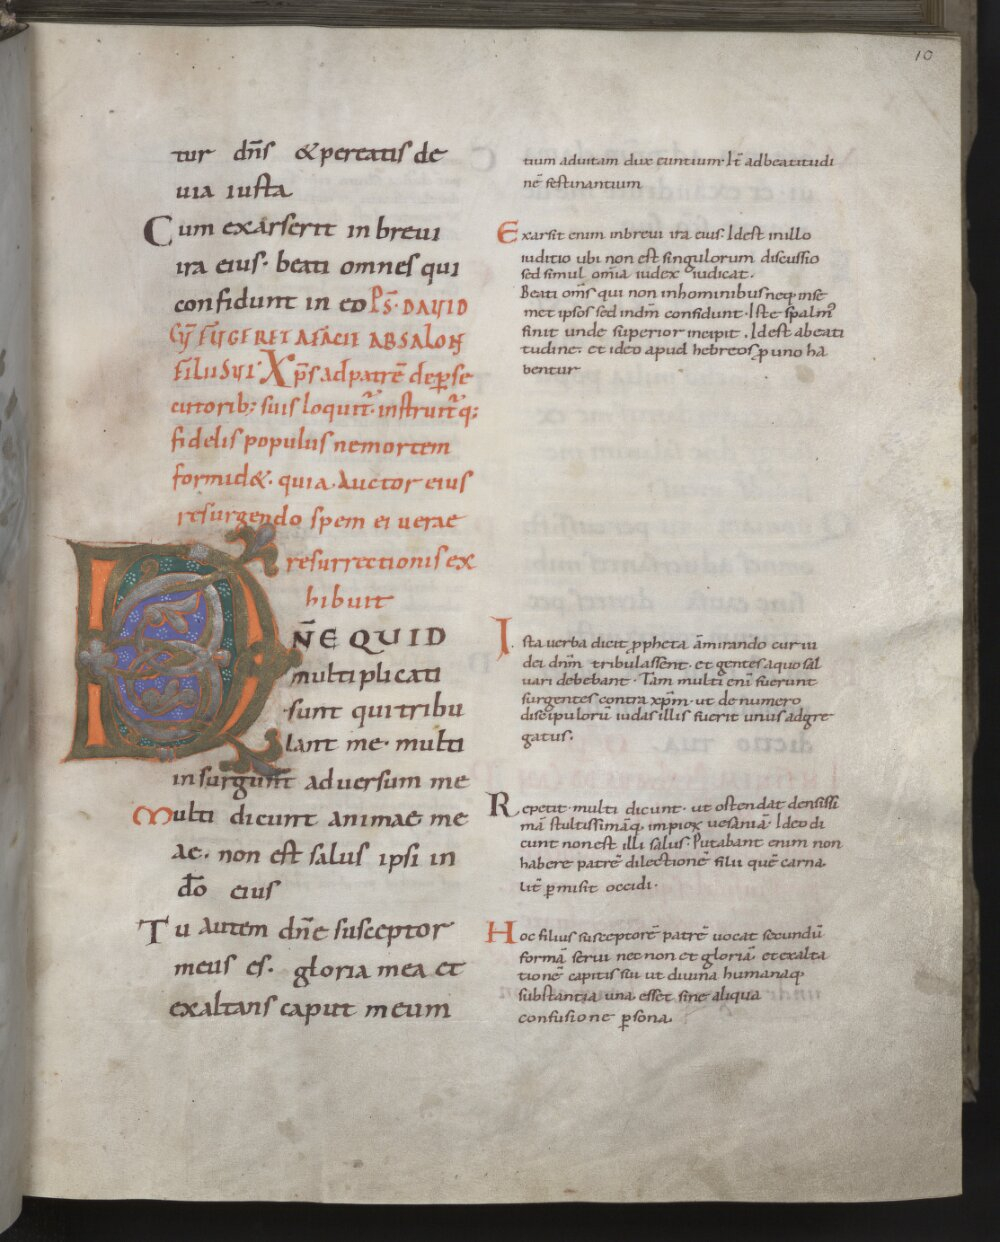 10
tur dn̄s &pereatis de
uia iusta
Cum exarserit in breui
ira eius· beati omnes qui
confidunt in eo PS̄· DAVID
CŪ FUGERET A FACIE ABSALON
FILII SUI· Xp̄s ad patrē de ꝑse
cutorib; suis loquit̄· instruit q;
fidelis populus ne mortem
formid&· quia Auctor eius
resurgendo spem ei uerae
resurrectionis ex
hibuit
DN̄E QUID
multiplicati
sunt qui tribu
lant me· multi
insurgunt aduersum me
Multi dicunt animae me
ae· non est salus ipsi in
d̄o eius
Tu autem dn̄e susceptor
meus es· gloria mea et
exaltans caput meum
tium ad uitam dux euntium· It̄ ad beatitudi
nē festinantium
Exarsit enim in breui ira eius· Id est in illo
iuditio ubi non est singulorum discussio
sed simul om̄ia iudex iudicat·
Beati om̄s qui non in hominibus neq; in se
met ipsos sed in dn̄m confidunt· Iste spalm̄
finit unde superior incipit· Id est a beati
tudine· et ideo apud hebreos ꝓ uno ha
bentur
Ista uerba dicit ꝓpheta āmirando cur iu
dei dn̄m tribulassent· et gentes a quo sal
uari debebant· Tam multi eni fuerunt
surgentes contra xp̄m· ut de numero
discipulorū iudas illis fuerit unus adgre
gatus·
Repetit· multi dicunt· ut ostendat densissi
mā stultissimāq; impioꝝ uesaniā· Ideo di
cunt non est illi salus· Putabant enim non
habere patrē dilectionē filii quē carna
lit̄ ꝑmisit occidi·
Hoc filius susceptorē patrē uocat secundū
formā serui nec non et gloriā· et exalta
tionē capitis sui ut diuina humanaq;
substantia una esset sine aliqua
confusione ꝑsona·